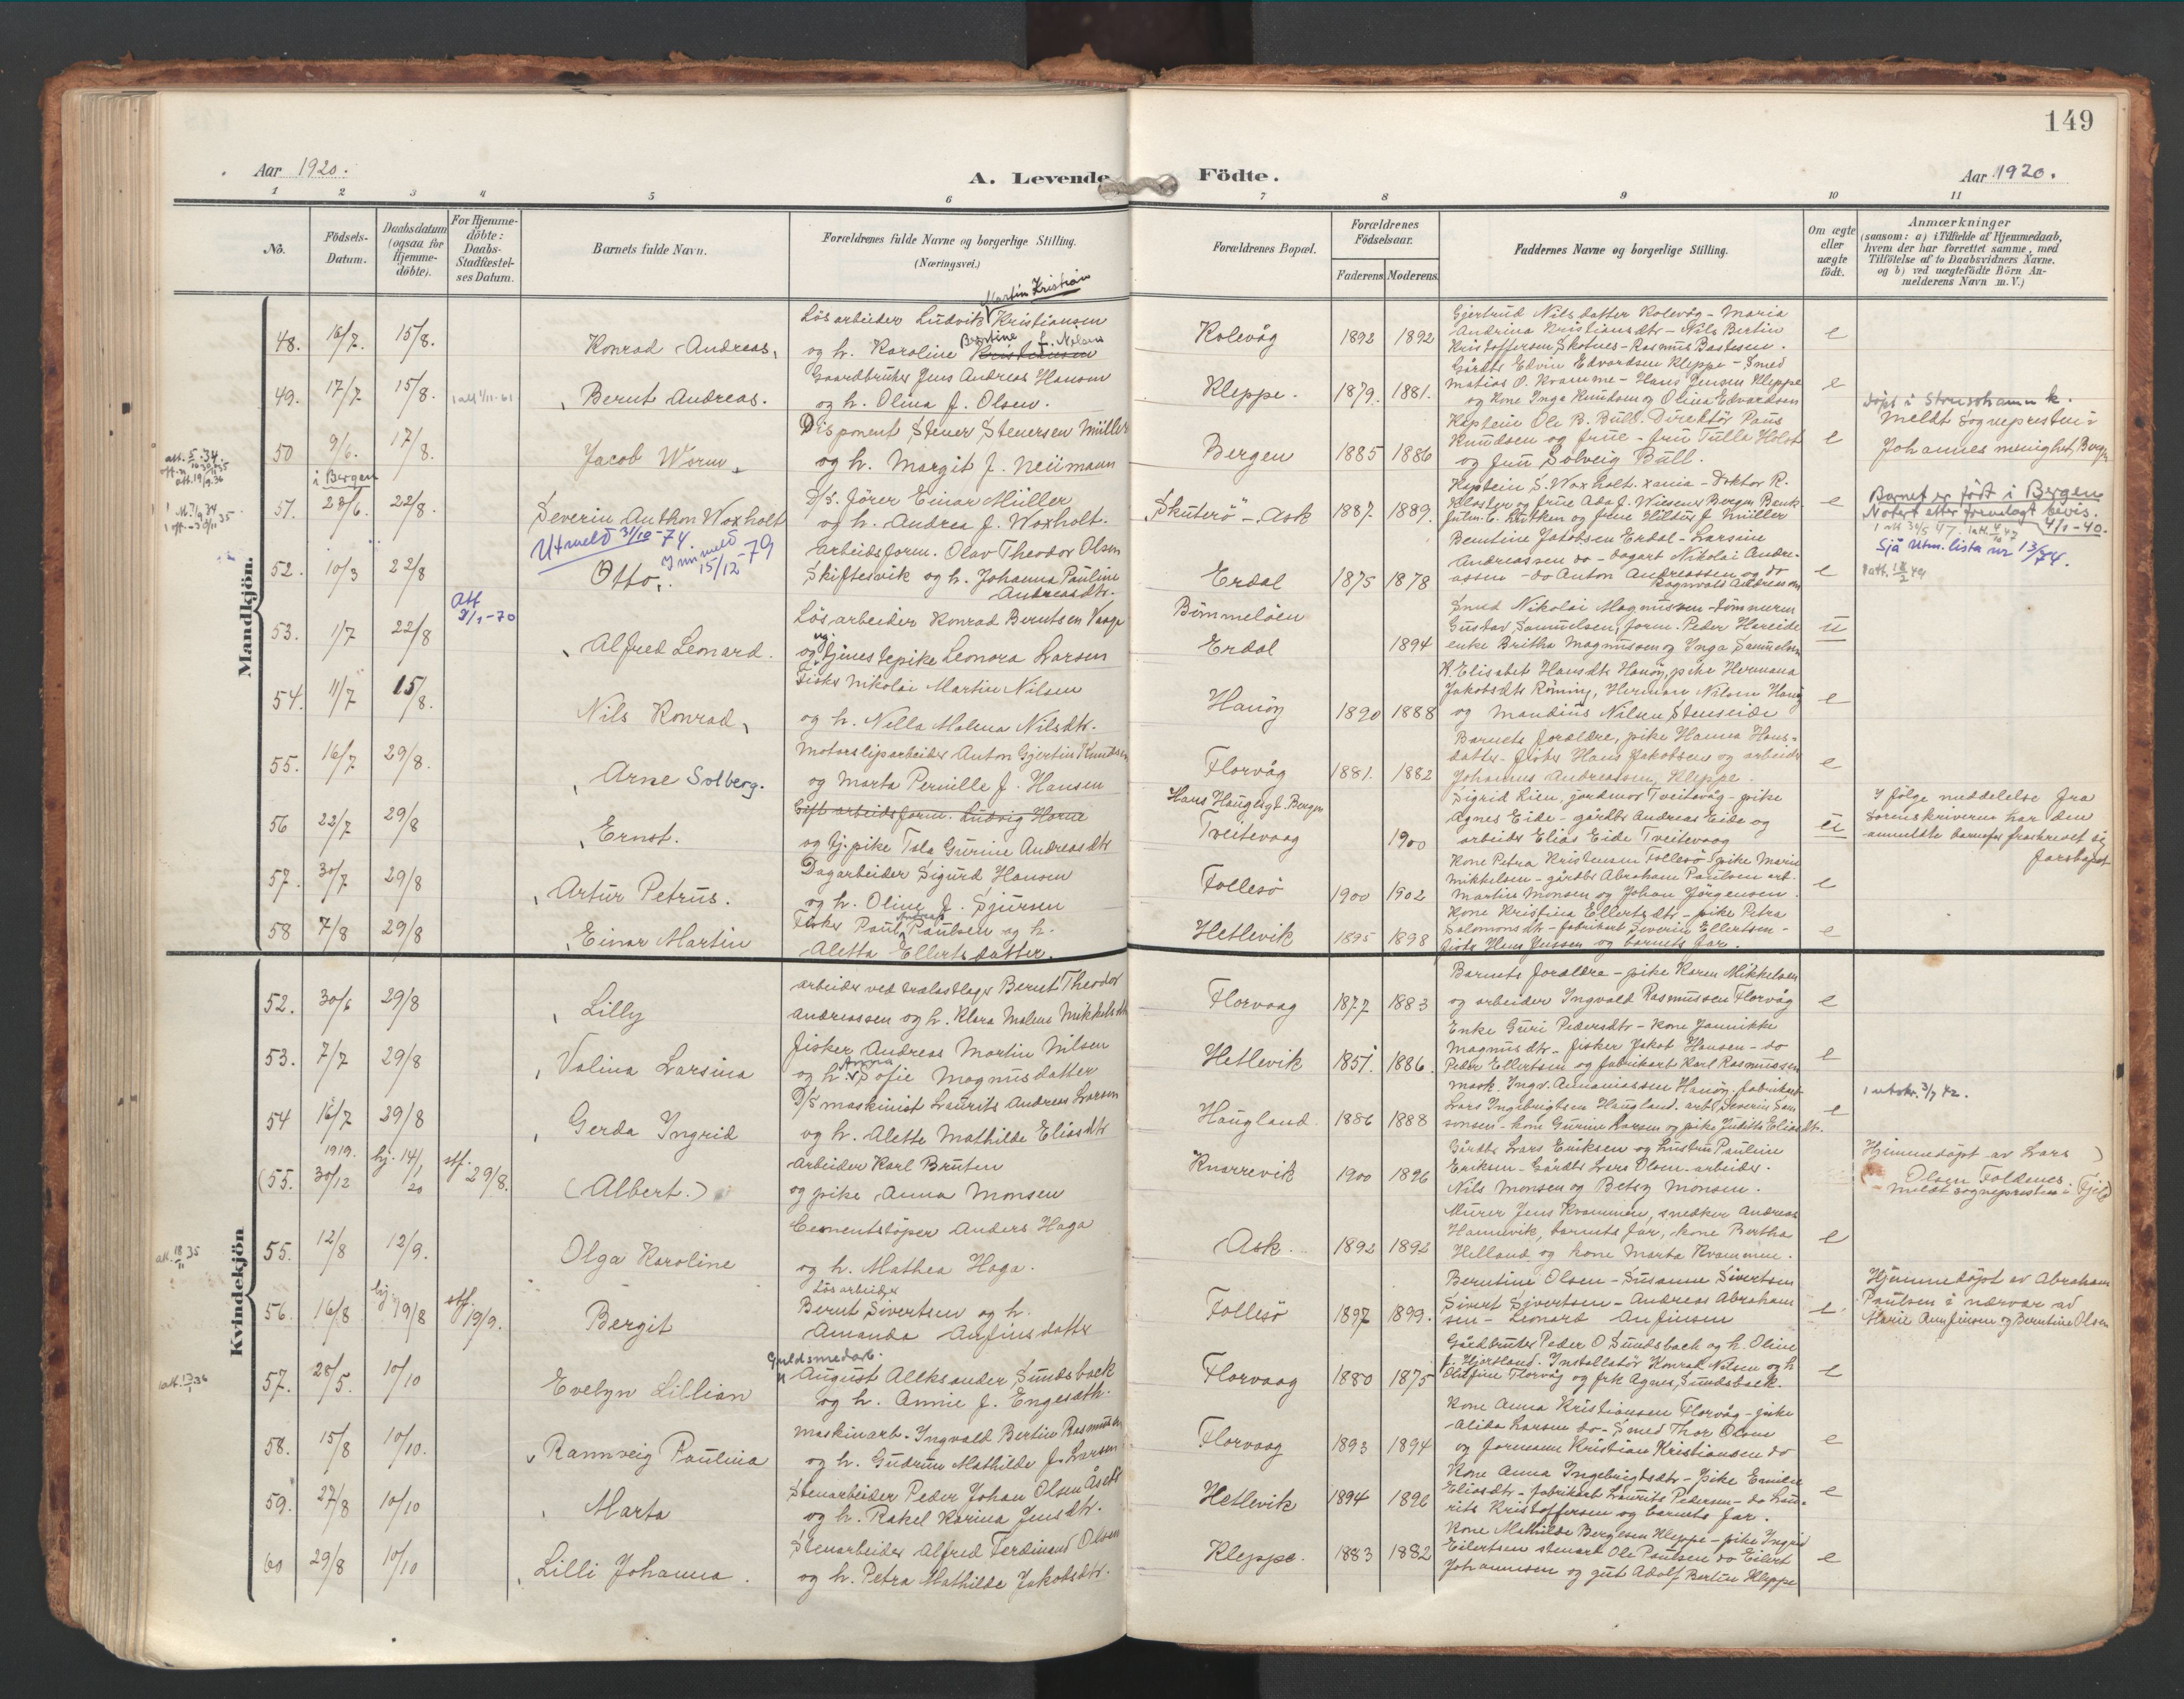 149
Aar 1920.
A. Levende Födte.
Aar 1920.
1 2 3 4 5 6 7 8 9 10 11
No.
Födsels-Datum.
Daabsdatum (ogsaa for Hjemme-döbte).
For Hjemme-döbte: Daabs-Stadfæstel-ses Datum.
Barnets fulde Navn.
Forældrenes fulde Navne og borgerlige Stilling. (Næringsvei.)
Forældrenes Bopæl.
Forældrenes Födselsaar.
Faderens Moderens
Faddernes Navne og borgerlige Stilling.
Om ægte eller uægte födt.
Anmærkninger
(saasom: a) i Tilfælde af Hjemmedaab, hvem der har forrettet samme, med Tilföielse af to Daabsvidners Navne. og b) ved uægtefödte Börn An-melderens Navn m. V.)
Mandkjön.
48. 16/7. 15/8. Konrad Andreas,
Martin Kristian
Lösarbeider Ludvik Kristiansen
og h. Karoline Bertine f. Nilsen
Kolevåg 1892 1892
Gjertrud Nilsdatter Kolevåg - Maria
Andrina Kristiansdtr - Nils Bertin
Kristoffersen Skotnes - Rasmus Bastesen.
e
49. 17/7 15/8. Bernt Andreas.
Gaardbruker Jens Andreas Hansen
og h. Olina f. Olsen.
Kleppe. 1879. 1881.
Gårdbr Edvin Edvardsen Kleppe - Smed
Matias O. Kramme - Hans Jensen Kleppe
og Kone Inga Knudsen og Olina Edvardsen
e
50 9/6. i Bergen 17/8. Jacob Worm,
Disponent Stener Stenersen Müller
og h. Margit f. Neumann
Bergen 1885 1886
Kaptein Ole B. Bull. Direktör Paus
Knudsen og frue - fru Tulla Holst
og frn Solveig Bull.
e
döpt i Storehamn k.
meldt Sogneprosten i
Johannes menighet, Bergen
51. 28/6. 22/8. Severin Anthon Woxholt
Utmeld 31/10-74. Innmeld 15/12-79
D/S. förer Einar Müller
og h. Andrea f. Woxholt.
Skuterö - Ask 1887. 1889.
Kaptein S. Woxholt. Xania - Doktor R.
Kloster og frue Ada f. Wiesener Bergen Bank-
fulm. E. Lütken og frue Hildur f. Müller
e
Barnet er födt i Bergen
Notert etter fremlagt bevis. 4/1-40.
Sjå Utm. lista nr 13/74.
52. 10/3 22/8 Otto,
Arbeidsform. Olav Theodor Olsen
Skiftesvik og h. Johanna Pauline
Andreasdtr.
Erdal 1875 1878
Bentine Jakobsen Erdal - Larsine
Andreassen do - dagarb Nikolai Andre-
assen - do Anton Andreassen og do
Ragnvald Andreassen
e
53. 1/7 22/8 Att 9/1-70 Alfred Leonard.
Lösarbeider Konrad Berntsen Vaage
og ug. tjenestepike Leonora Larsen
Bömmelöen
Erdal 1894
Smed Nikolai Magnussen - tömmerm
Gustav Samuelsen, form. Peder Hareide
enke Britha Magnussen og Inga Samuelsen
u
54. 11/7 15/8. Nils Konrad,
Fisker Nikolai Martin Nilsen
og h. Nella Malena Nilsdtr.
Hanöy 1890 1888
K. Elisabet Hansdtr Hanöy, pike Hermana
Jakobsdtr Röming, Herman Nilsen Hanöy
og Mandius Nilsen Stenseide
e
55. 16/7 29/8. Arne Solberg.
Motorsliparbeider Anton Gjertin Knudsen
og Marta Pernille f. Hansen
Florvåg 1881. 1882
Barnets forældre, pike Hanna Hans-
datter - fisker Hans Jakobsen og arbeider
Johannes Andreassen, Kleppe.
e
56 22/7 29/8 Ernst.
Gift arbeidsform. Ludvig Horne
og tj. pike Tala Gurine Andreasdtr
Hans Haugligt. Bergen
Tveitevaag 1900
Sigrid Lien, jordmor Tveitevåg - pike
Agnes Eide - gårdbr Andreas Eide og
arbeider Elias Eide Tveitevaag
u
I fölge meddelelse fra
Sorenskriveren har den
anmeldte barnefar fraskrevet sig
farskapet
57. 30/7 29/8 Artur Petrus.
Dagarbeider Sigurd Hansen
og h. Oline f. Sjursen
Follesö 1900 1902
Kone Petra Kristensen Follesö, pike Marie
Mikkelsen - gårdbr Abraham Paulsen arb.
Martin Monsen og Johan Jörgensen.
e
58 7/8 29/8 Einar Martin
Fisker Paul Andreas Paulsen og h.
Aletta Ellertsdatter.
Hetlevik 1895 1898
Kone Kristina Ellertsdtr - pike Petra
Salomonsdtr - fabrikarb Severin Ellertsen -
fisker Hans Jensen og barnets far.
e
Kvindekjön
52. 30/6 29/8 Lilly
Arbeider ved trælastlager Bernt Theodor
Andreassen og h. Klara Malene Mikkelsdtr
Florvaag 1877 1883
Barnets forældre - pike Karen Mikkelsen
og arbeider Ingvald Rasmussen Florvåg
e
53. 7/7 29/8 Valina Larsina
Fisker Andreas Martin Nilsen
og h. Anna Sofie Magnusdatter
Hetlevik 1851 1886.
Enke Guri Pedersdtr - Kone Jannikke
Magnusdtr - fisker Jakob Hansen - do
Peder Ellertsen og fabrikarb Karl Rasmussen
e
54 16/7 29/8 Gerda Ingrid
D/S maskinist Laurits Andreas Larsen
og h. Alette Mathilde Eliasdtr
Haugland. 1886 1888
Mask. Ingv. Annaniassen Hanöy. fabrikarb
Lars Ingebrigtsen Haugland. arb Severin Sam
sonsen - kone Gurine Larsen og pike Judith Eliasdtr.
e
1 utskr. 3/7 42.
(55. 1919. 30/12 hj. 14/1 20 stf. 29/8. (Albert.)
Arbeider Karl Bruten
og pike Anna Monsen
Knarrevik 1900 1896
Gårdbr Lars Eriksen og hustru Pauline
Eriksen - Gårdbr Lars Olsen - arbeider.
Nils Monsen og Betsy Monsen.
Hjemmedöpt av Lars
Olsen Foldenes.
meldt sogneprosten i Fjeld)
55. 12/8 12/9. Olga Karoline
Cementstöper Anders Haga
og h. Mathea Haga.
Ask. 1892 1892
Murer Jens Krammen, snedker Andreas
Hannevik, barnets far, kone Bertha
Helland og kone Marta Krammen.
e
56. 16/8 hj. 19/8 stf. 19/9. Bergit
Lösarbeider
Bernt Sivertsen og h.
Amanda Anfinsdatter
Follesö 1897 1899.
Berntine Olsen - Susanne Sivertsen
Sivert Sivertsen - Andreas Abraham
sen - Leonard Anfinsen
e
Hjemmedöpt av Abraham
Paulsen i nærvær av
Marie Annfinsen og Berntine Olsen
57. 28/5. 10/10 Evelyn Lillian
Guldsmedarb.
August Aleksander Sundsback
og h. Annie f. Engesæth.
Florvaag 1880 1875
Gårdbruker Peder O Sundsback og h. Oline
f. Hjertland. Installatör Konrad Nilsen og h
Florvåg og frk Agnes Sundsback.
e
58. 15/8 10/10. Rannveig Paulina
Maskinarb. Ingvald Bertin Rasmussen
og h. Gudrun Mathilde f. Larsen
Florvaag 1893 1894
Kone Anna Kristiansen Florvåg - pike
Alida Larsen do - Smed Thor Olsen
og formann Kristian Kristiansen do
e
59. 27/8 10/10 Marta
Stenarbeider Peder Johan Olsen Åsebö
og h. Rakel Karina Jensdtr.
Hetlevik 1894 1896
Kone Anna Ingebrigtsdtr - pike Emilie
Eliasdtr - fabrikarb Laurits Pedersen - do Lau-
rits Kristoffersen og barnets far.
e
60 29/8 10/10 Lilli Johanna.
Stenarbeider Alfred Ferdinand Olsen
og h. Petra Mathilde Jakobsdtr.
Kleppe. 1883 1882
Kone Mathilde Bergesen Kleppe - pike Ingrid
Eilertsen stenarb Ole Paulsen do Eilert
Johannesen og gut Adolf Bertin Kleppe
e